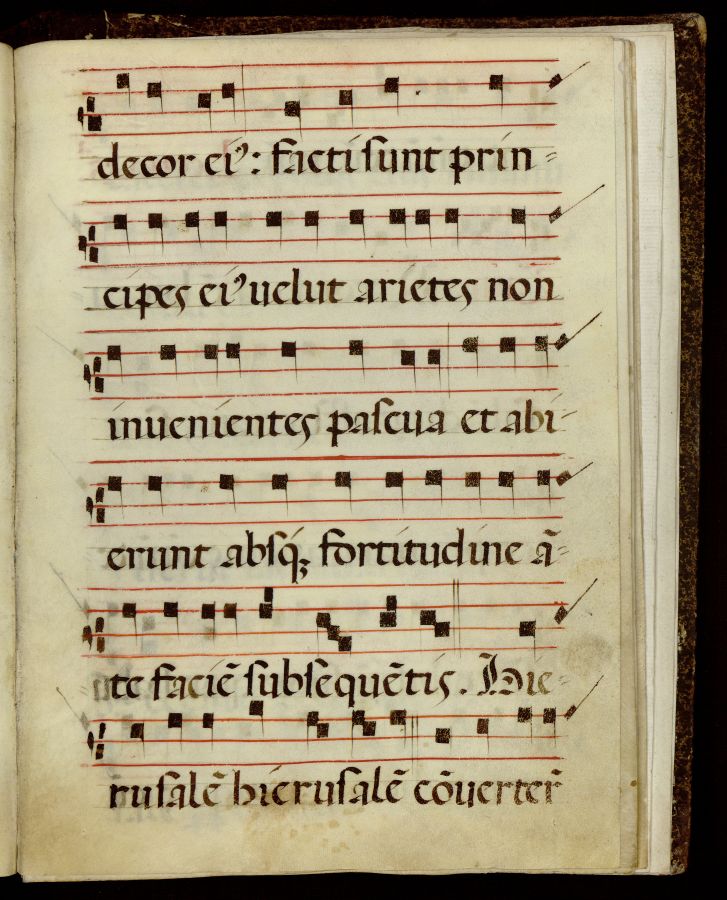 decor eiꝰ: facti sunt prin=
cipes eiꝰ uelut arietes non
inuenientes pascua et abi-
erunt absqꝫ fortitudine ā=
te faciē subsēquētis. Hie=
rusalē hierusalē cōuerter̄